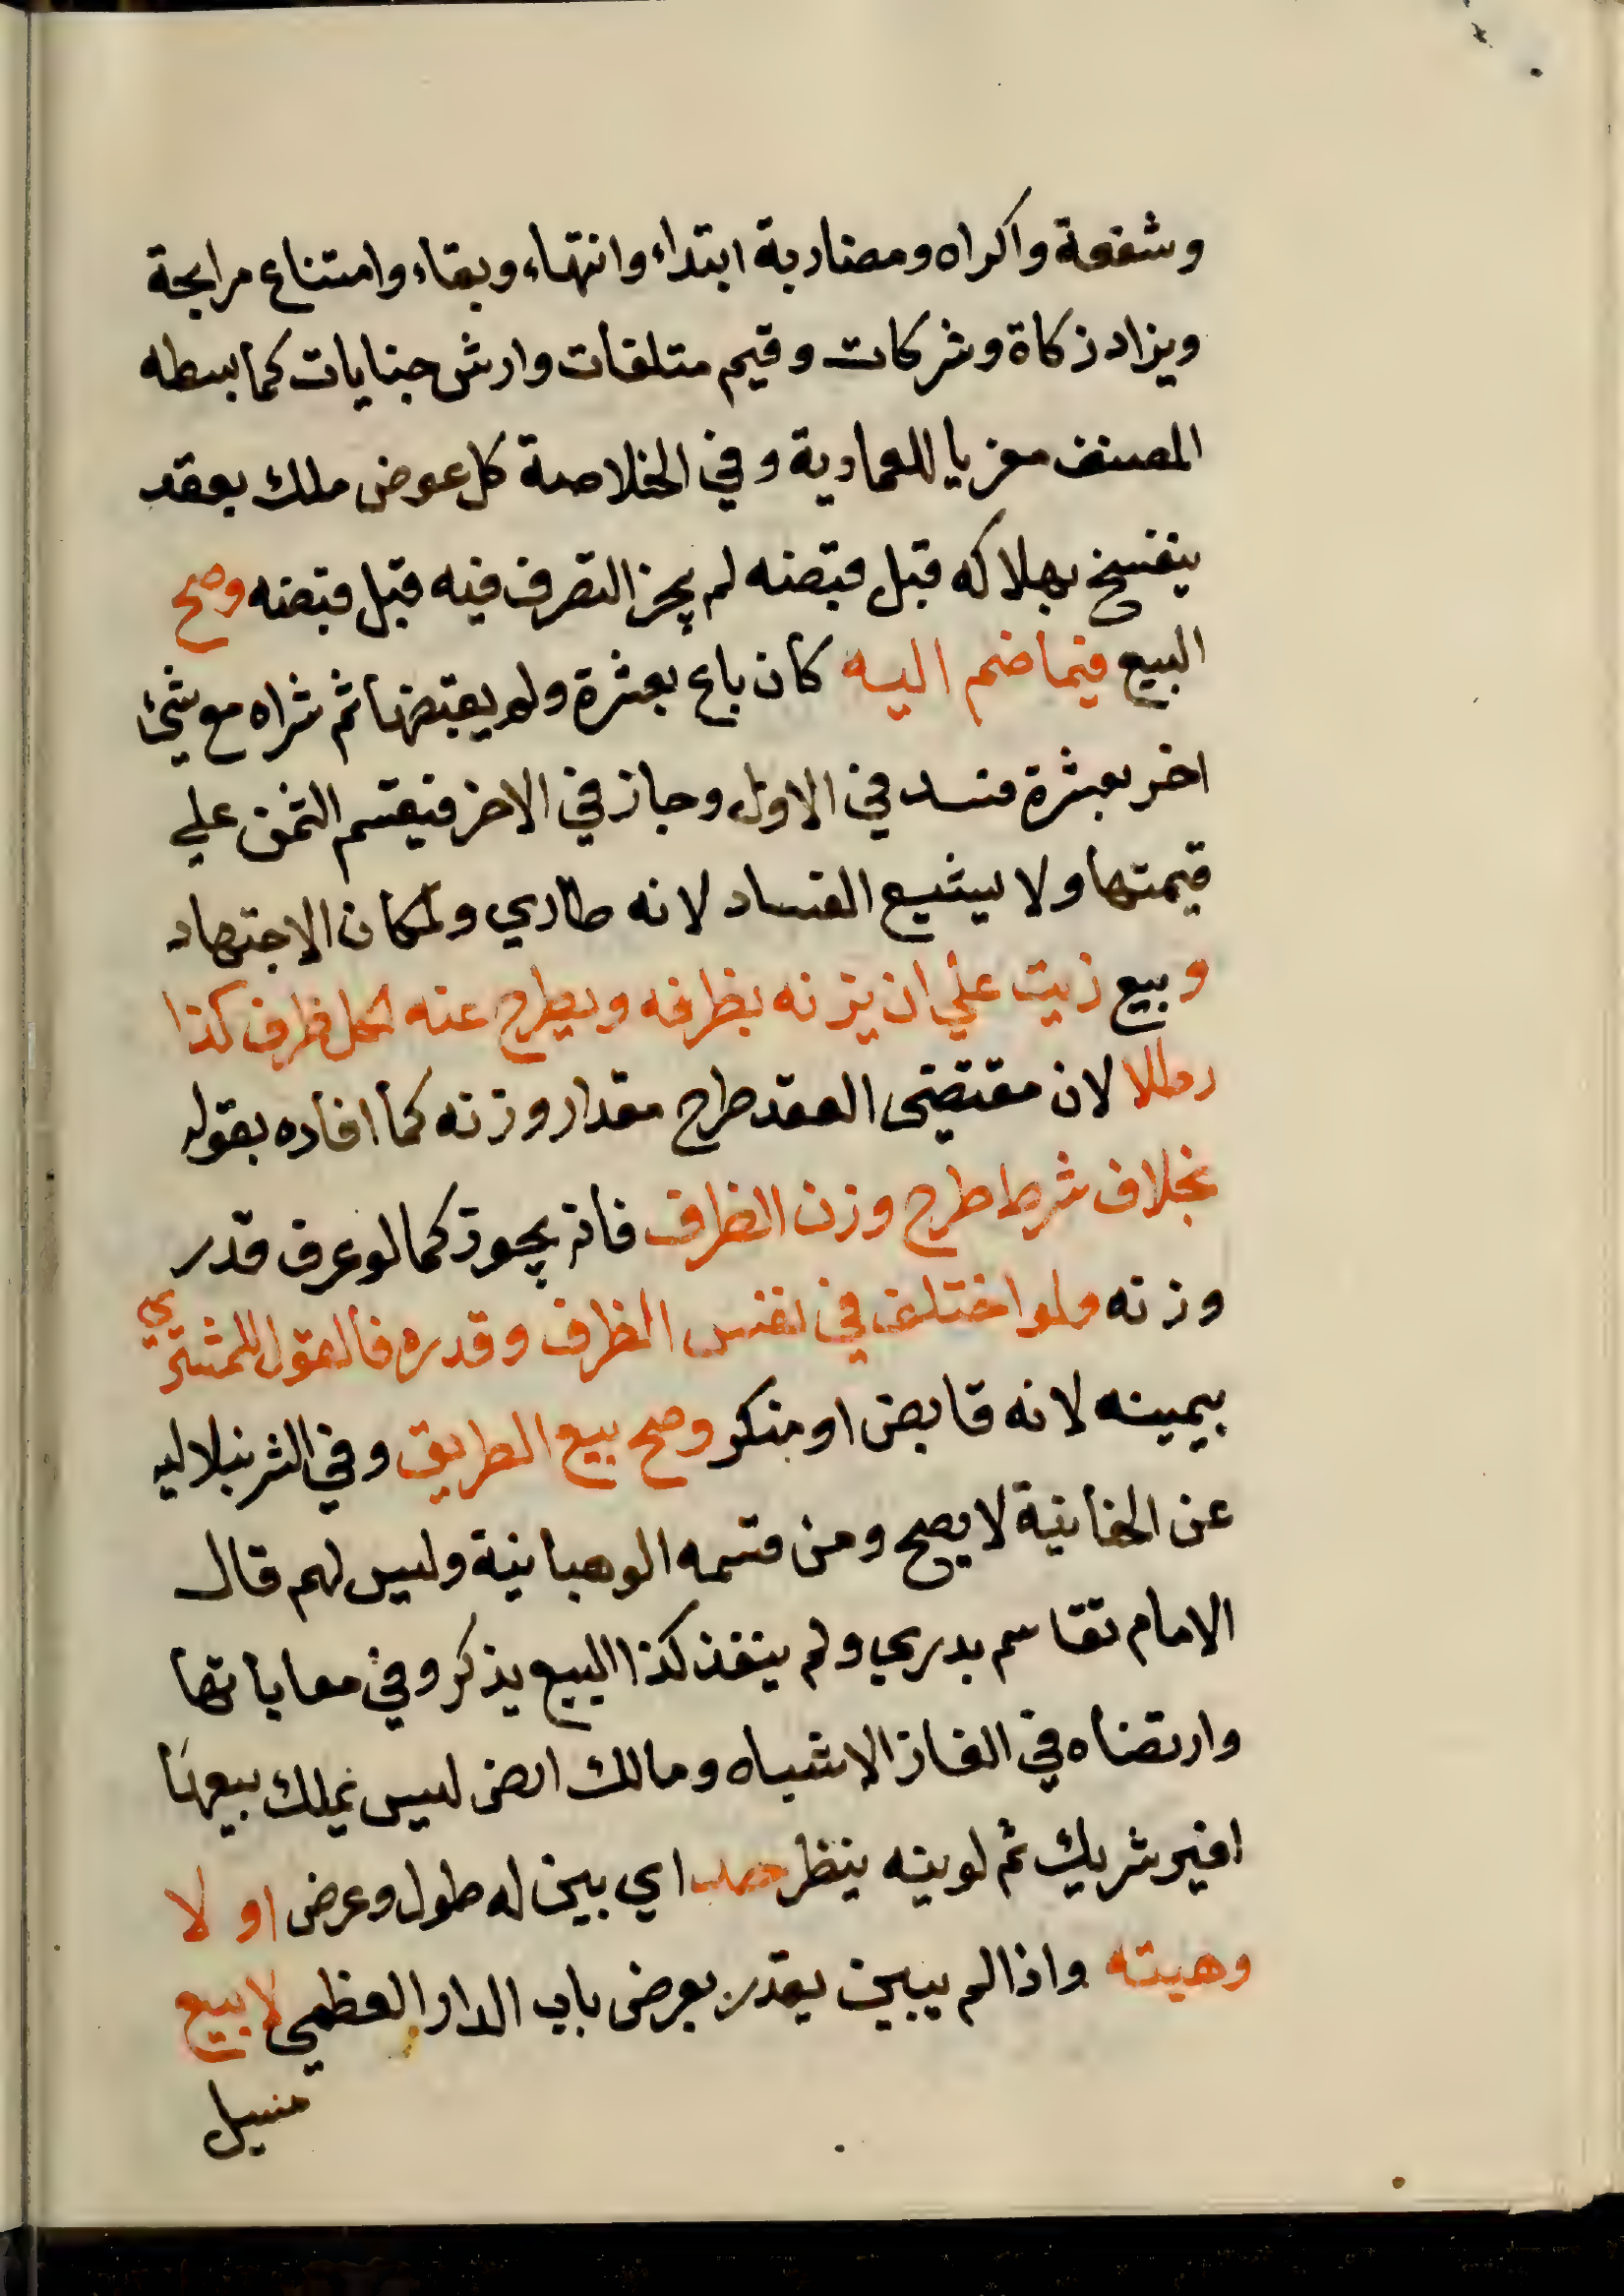 وشفعة واكراه ومضاربة ابتداء وانتهاء وبقاء وامتناع مرابحة
ويزاد زكاة وشركات وقيم متلفات وارش جنايات كما بسطه
المصنف معزيا للعمادية وفي الخلاصة كل عوض ملك بعقد
ينفسخ بهلاكه قبل قبضه لم يجز التصرف فيه قبل قبضه وصح
البيع فيما ضم اليه كان باع بعشرة ولم يقبضها ثم شراه مع شئ
اخر بعشرة فسد في الاول وجاز في الاخر فيقسم الثمن علي
قيمتها ولا يشيع الفساد لانه طاري ولمكان الاجتهاد
وبيع زيت علي ان يزنه بظرفه ويطرح عنه لكل ظرف كذا
رطلا لان مقتضى العقد طرح مقدار وزنه كما افاده بقوله
بخلاف شرط طرح وزن الظرف فانه يجوز كما لو عرف قدر
وزنه ولو اختلف في نفس الظرف وقدره فالقول للمشتري
بيمينه لانه قابض او منكر وصح بيع الطريق وفي الشرنبلاليه
عن الخانية لا يصح ومن قسمه الوهبانية وليس لهم قال
الامام تقاسم بدربي ولم ينفذ كذا البيع يذكر وفي معاياتها
وارتضاه في الغاز الاشباه ومالك ارض ليس يملك بيعها
لغير شريك ثم لو بينه ينظر حد اي بين له طول وعرض او لا
وهبته واذا لم يبين يقدر بعرض باب الدار العظمي لا بيع
مسيل